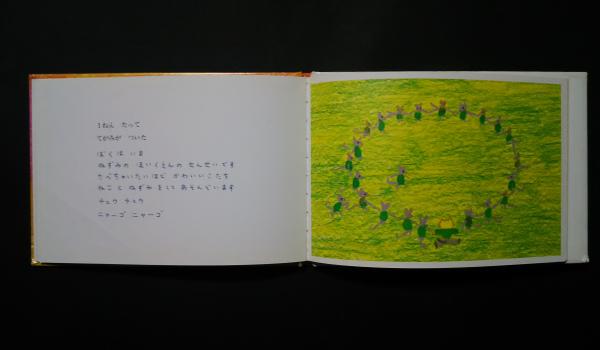 1ねん たって
てがみが ついた
ぼくは いま
ねずみの ほいくえんの せんせいです
たべちゃいたいほど かわいいこたち
ねこと ねずみをして あそんでいます
チュウ チュウ
ニャーゴ ニャーゴ